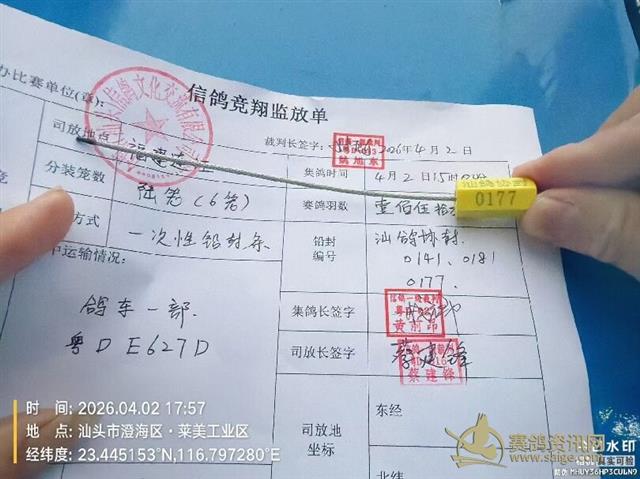 信鸽竞翔监放单
办比赛单位(章):
文化交流有限公司
裁判长签字:
2026年4月2日
司放地点
福建
集鸽时间
4月2日15时
分装笼数
陆笼(6笼)
赛鸽羽数
壹佰伍拾
汕鸽协封
0177
方式
一次性铅封条
铅封
编号
汕鸽协封
0141、0181
0177.
中运输情况:
鸽车一部.
粤D E627D
集鸽长签字
信鸽一级裁判
司放长签字
蔡建锋
蔡建锋
司放地
坐标
东经
北纬
时 间: 2026.04.02 17:57
地 点: 汕头市澄海区·莱美工业区
经纬度: 23.445153°N,116.797280°E
赛鸽资讯网
www.saige.com
水印
真实可验